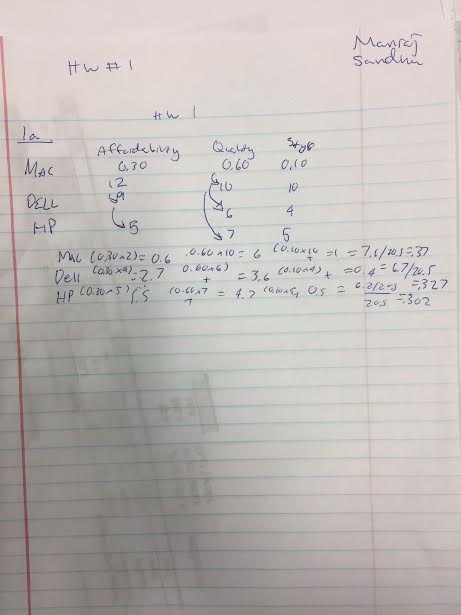 Manraj
Sandhu
HW #1
HW 1
1a
Affordability Quality Style
MAC 0.30 0.60 0.10
10 10
DELL 9 6 4
HP 5 7 5
Mac (0.30x2)= 0.6 0.60x10 = 6 (0.10x10 + =1 = 7.6/20.5=.37
Dell (0.30x9)=2.7 0.60x6) + = 3.6 (0.10x4) + =0.4 = 6.7/20.5
HP (0.30x5) 1.5 (0.60x7 + = 4.2 (0.10x5, 0.5 = =.327
20.5 =.302